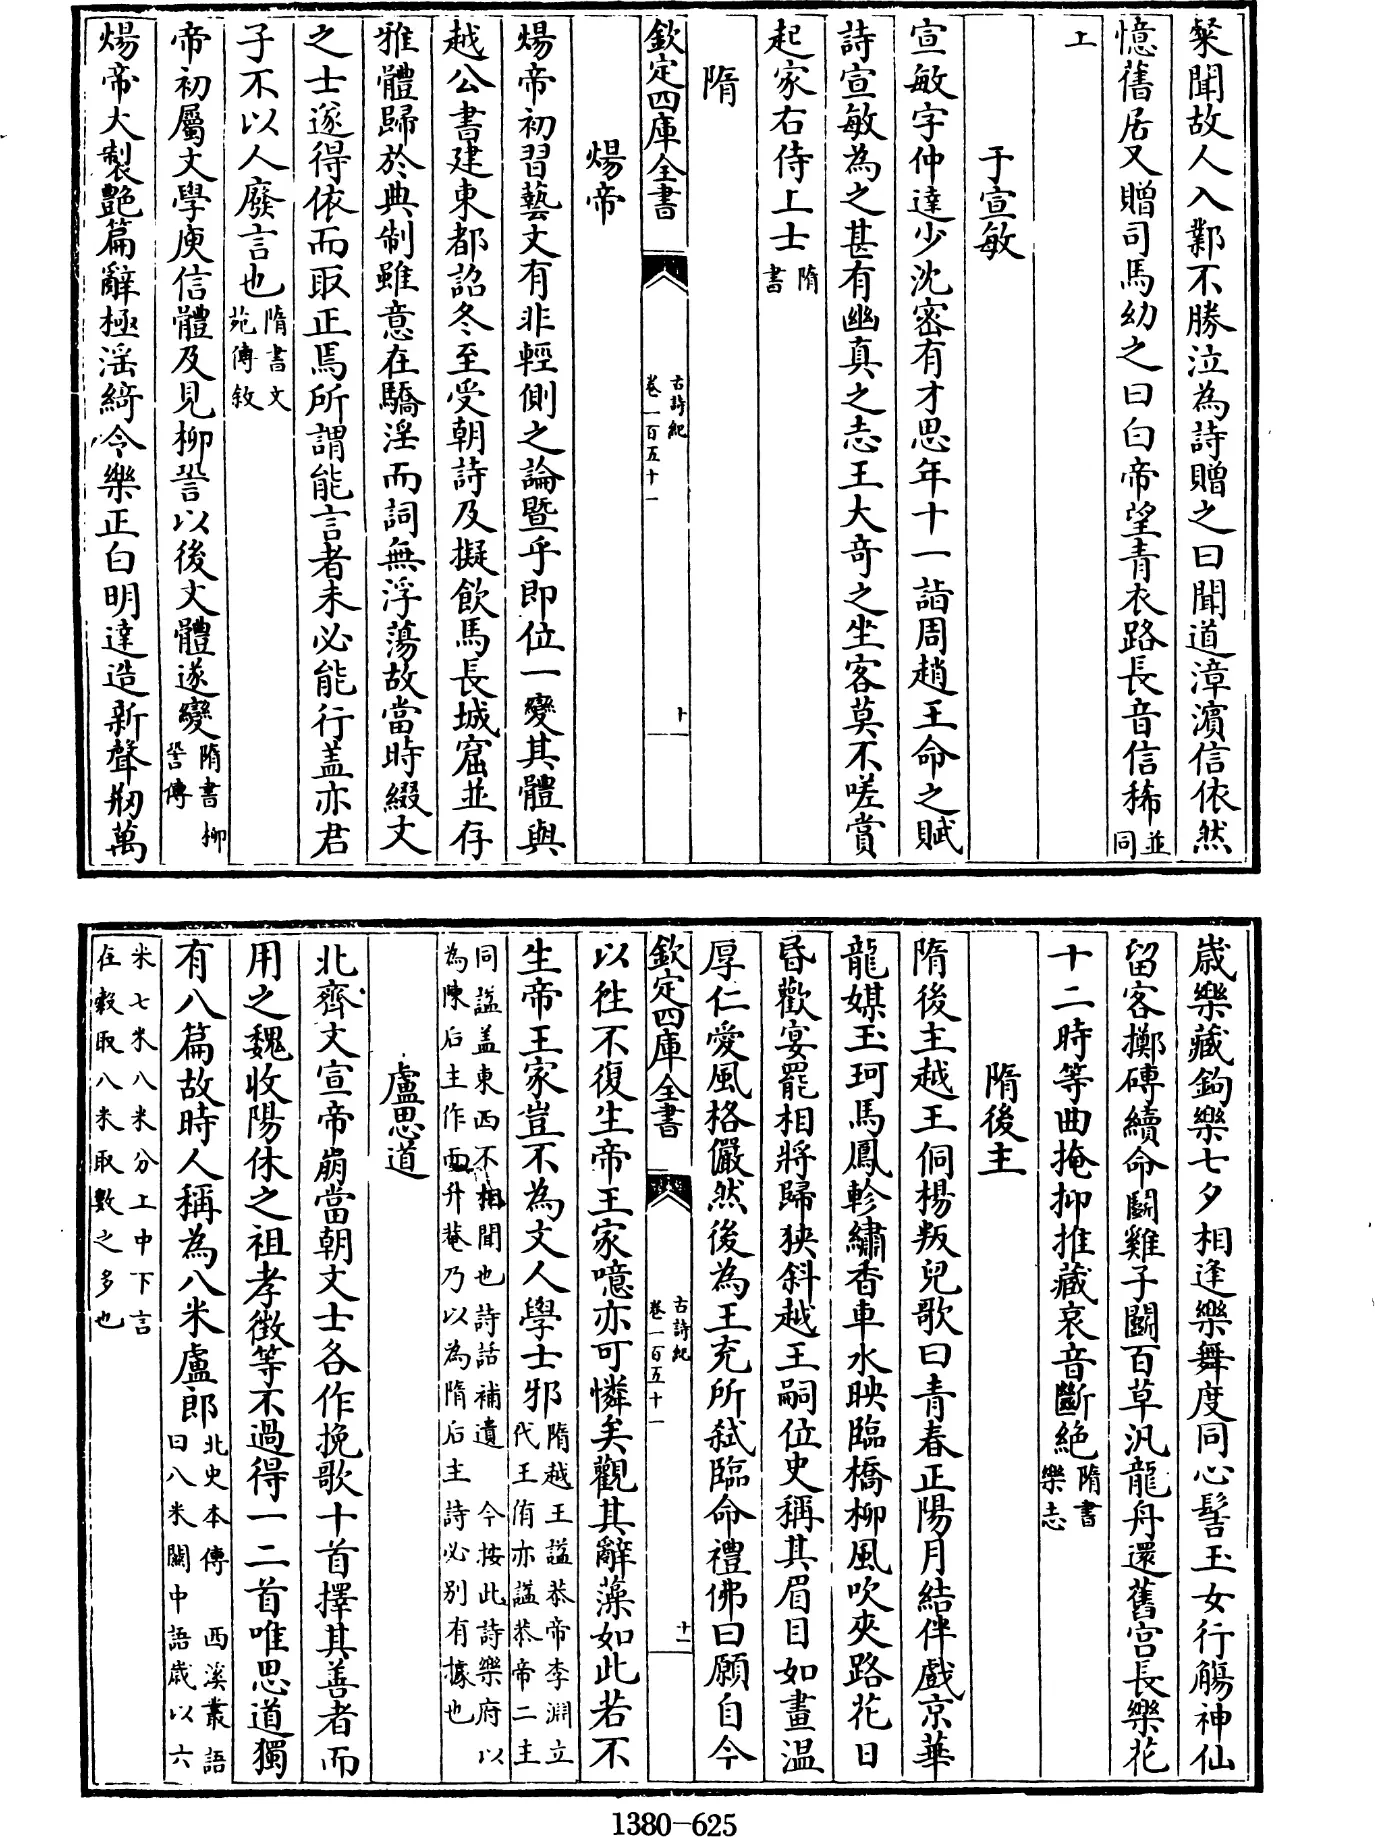 粲聞故人入鄴不勝泣為詩贈之曰聞道漳濵信依然
憶舊居又贈司馬幼之曰白帝望青衣路長音信稀並同
上
于宣敏
宣敏字仲達少沈密有才思年十一詣周趙王命之賦
詩宣敏為之甚有幽真之志王大奇之坐客莫不嗟賞
起家右侍上士隋書
隋
欽定四庫全書
古詩紀
卷一百五十一
十
煬帝
煬帝初習藝文有非輕側之論暨乎即位一變其體與
越公書建東都詔冬至受朝詩及擬飲馬長城窟並存
雅體歸於典制雖意在驕淫而詞無浮蕩故當時綴文
之士遂得依而取正焉所謂能言者未必能行盖亦君
子不以人廢言也隋書文苑傳敘
帝初屬文學庾信體及見柳䛒以後文體遂變隋書柳䛒傳
煬帝大製艷篇辭極淫綺令樂正白明達造新聲剏萬
歳樂藏鉤樂七夕相逢樂舞度同心髻玉女行觴神仙
留客擲磚續命鬭雞子鬭百草汎龍舟還舊宫長樂花
十二時等曲掩抑摧藏哀音斷絶隋書樂志
隋後主
隋後主越王侗楊叛兒歌曰青春正陽月結伴戲京華
龍媒玉珂馬鳳軫繡香車水映臨橋柳風吹夾路花日
昏歡宴罷相將歸狹斜越王嗣位史稱其眉目如畫温
厚仁愛風格儼然後為王充所弑臨命禮佛曰願自今
欽定四庫全書
古詩紀
卷一百五十一
十一
以往不復生帝王家噫亦可憐矣觀其辭藻如此若不
生帝王家豈不為文人學士邪隋越王諡恭帝李淵立代王侑亦諡恭帝二主
同諡盖東西不相聞也詩話補遺 今按此詩樂府以
為陳后主作而升菴乃以為隋后主詩必别有據也
盧思道
北齊文宣帝崩當朝文士各作挽歌十首擇其善者而
用之魏收陽休之祖孝徵等不過得一二首唯思道獨
有八篇故時人稱為八米盧郎北史本傳 西溪叢語曰八米關中語歳以六
米七米八米分上中下言
在穀取八米取數之多也
1380—625